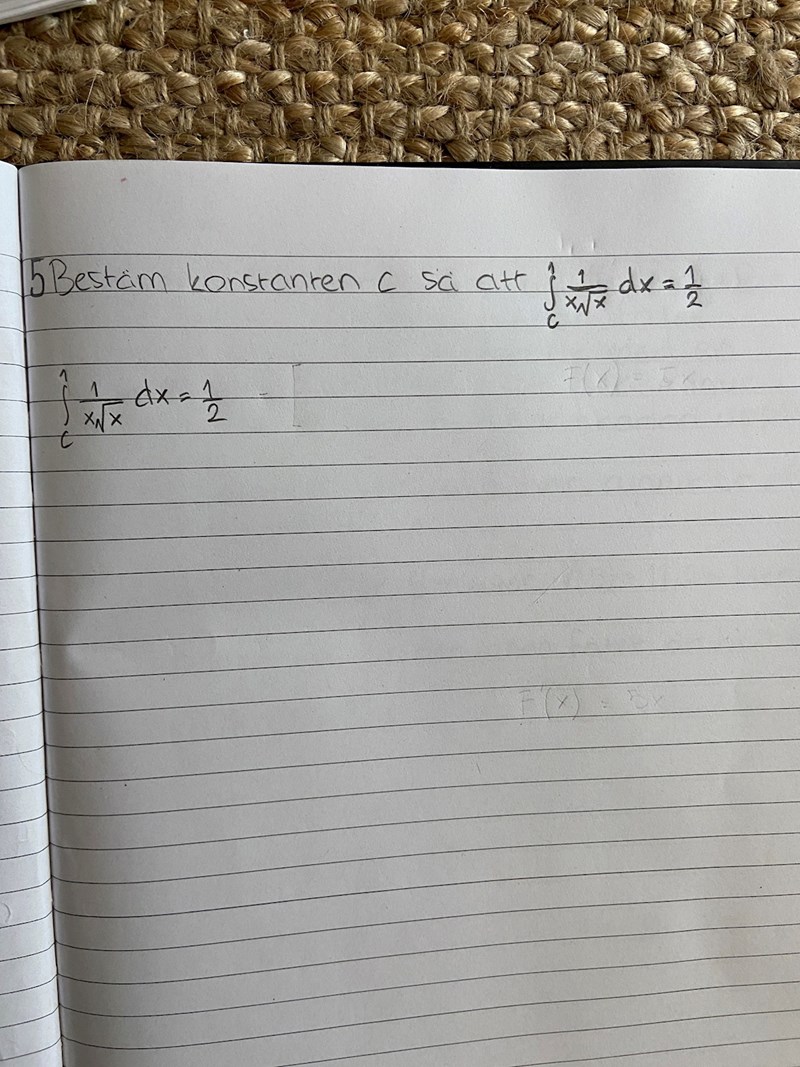 5 Bestäm konstanten c så att ∫_c^1 1/(x√x) dx = 1/2
∫_c^1 1/(x√x) dx = 1/2
F(x) = 5x
F(x) = 5x